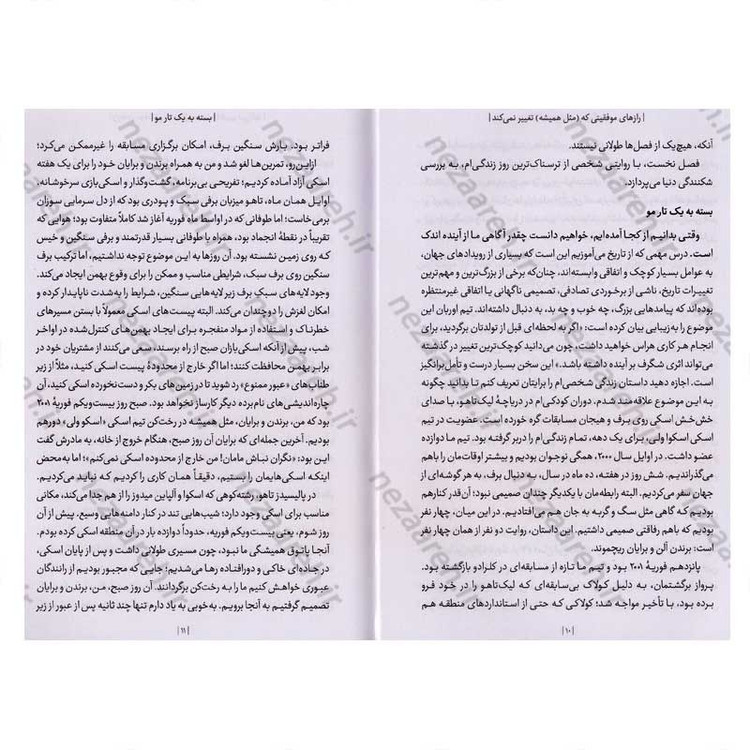 | رازهای موفقیتی که (مثل همیشه) تغییر نمی‌کند |
آنکه، هیچ‌یک از فصل‌ها طولانی نیستند.
فصل نخست، با روایتی شخصی از ترسناک‌ترین روز زندگی‌ام، به بررسی
شکنندگی دنیا می‌پردازد.
بسته به یک تار مو
وقتی بدانیم از کجا آمده‌ایم، خواهیم دانست چقدر آگاهی ما از آینده اندک
است. درس مهمی که از تاریخ می‌آموزیم این است که بسیاری از رویدادهای جهان،
به عوامل بسیار کوچک و اتفاقی وابسته‌اند، چنان‌که برخی از بزرگ‌ترین و مهم‌ترین
تغییرات تاریخ، ناشی از برخوردی تصادفی، تصمیمی ناگهانی یا اتفاقی غیرمنتظره
بوده‌اند که پیامدهایی بزرگ، چه خوب و چه بد، به دنبال داشته‌اند. تیم اوربان این
موضوع را به‌زیبایی بیان کرده است: «اگر به لحظه‌ای قبل از تولدتان برگردید، برای
انجام هر کاری هراس خواهید داشت، چون می‌دانید کوچک‌ترین تغییر در گذشته
می‌تواند اثری شگرف بر آینده داشته باشد.» این سخن بسیار درست و تأمل‌برانگیز
است. اجازه دهید داستان زندگی شخصی‌ام را برایتان تعریف کنم تا بدانید چگونه
به این موضوع علاقه‌مند شدم. دوران کودکی‌ام در دریاچهٔ لیک‌تاهو، با صدای
خش‌خش اسکی روی برف و هیجان مسابقات گره خورده است. عضویت در تیم
اسکی اسکوا ولی، برای یک دهه، تمام زندگی‌ام را دربر گرفته بود. تیم ما دوازده
عضو داشت. در اوایل سال ۲۰۰۰، همگی نوجوان بودیم و بیشتر اوقاتمان را باهم
می‌گذراندیم. شش روز در هفته، ده ماه در سال، به دنبال برف، به هر گوشه‌ای از
جهان سفر می‌کردیم. البته رابطه‌مان با یکدیگر چندان صمیمی نبود؛ آن‌قدر کنارهم
بودیم که گاهی مثل سگ و گربه به جان هم می‌افتادیم. در این میان، چهار نفر
بودیم که باهم رفاقتی صمیمی داشتیم. این داستان، روایت دو نفر از همان چهار نفر
است: برندن آلن و برایان ریچموند.
پانزدهم فوریهٔ ۲۰۰۱ بود و تیم ما تازه از مسابقه‌ای در کلرادو بازگشته بود.
پرواز برگشتمان، به دلیل کولاکی بی‌سابقه‌ای که لیک‌تاهو را در خود فرو
برده بود، با تأخیر مواجه شد؛ کولاکی که حتی از استانداردهای منطقه هم
| ۱۰ |
| بسته به یک تار مو |
فراتر بود. بارش سنگین برف، امکان برگزاری مسابقه را غیرممکن می‌کرد؛
ازاین‌رو، تمرین‌ها لغو شد و من به همراه برندن و برایان خود را برای یک هفته
اسکی آزاد آماده کردیم؛ تفریحی بی‌برنامه، گشت‌وگذار و اسکی‌بازی سرخوشانه.
اوایل همان ماه، تاهو میزبان برفی سبک و پودری بود که از دل سرمایی سوزان
برمی‌خاست؛ اما طوفانی که در اواسط ماه فوریه آغاز شد کاملاً متفاوت بود؛ هوایی که
تقریباً در نقطهٔ انجماد بود، همراه با طوفانی بسیار قدرتمند و برفی سنگین و خیس
که روی زمین نشسته بود. آن روزها به این موضوع توجه نداشتیم، اما ترکیب برف
سنگین روی برف سبک، شرایطی مناسب و ممکن را برای وقوع بهمن ایجاد می‌کند.
وجود لایه‌های برف سبک زیر لایه‌هایی سنگین، شرایط را به‌شدت ناپایدار کرده و
امکان لغزش را دوچندان می‌کند. البته پیست‌های اسکی معمولاً با بستن مسیرهای
خطرناک و استفاده از مواد منفجره برای ایجاد بهمن‌های کنترل‌شده در اواخر
شب، پیش از آنکه اسکی‌بازان صبح از راه برسند، سعی می‌کنند از مشتریان خود در
برابر بهمن محافظت کنند؛ اما اگر خارج از محدودهٔ پیست اسکی کنید، مثلاً از زیر
طناب‌های «عبور ممنوع» رد شوید تا در زمین‌های بکر و دست‌نخورده اسکی کنید، آن
چاره‌اندیشی‌های نام‌برده دیگر کارساز نخواهد بود. صبح روز بیست‌ویکم فوریهٔ ۲۰۰۱
بود که من، برندن و برایان، مثل همیشه در رختکن تیم اسکی «اسکو ولی» دورهم
بودیم. آخرین جمله‌ای که برایان آن روز صبح، هنگام خروج از خانه، به مادرش گفت
این بود: «نگران نباش مامان! من خارج از محدوده اسکی نمی‌کنم»؛ اما به‌محض
اینکه اسکی‌هایمان را بستیم، دقیقاً همان کاری را کردیم که نباید می‌کردیم.
در پالیسیدز تاهو، رشته‌کوهی که اسکوا و آلپاین میدوز را از هم جدا می‌کند، مکانی
مناسب برای اسکی وجود دارد؛ شیب‌هایی تند در کنار دامنه‌هایی وسیع. پیش از آن
روز شوم، یعنی بیست‌ویکم فوریه، حدوداً دوازده بار در آن منطقه اسکی کرده بودم.
آنجا پاتوق همیشگی ما نبود، چون مسیری طولانی داشت و پس از پایان اسکی،
در جاده‌ای خاکی و دورافتاده رها می‌شدیم؛ جایی که مجبور بودیم از رانندگان
عبوری خواهش کنیم ما را به رخت‌کن برگردانند. آن روز صبح، من، برندن و برایان
تصمیم گرفتیم به آنجا برویم. به‌خوبی به یاد دارم تنها چند ثانیه پس از عبور از زیر
| ۱۱ |
nezaareh.ir